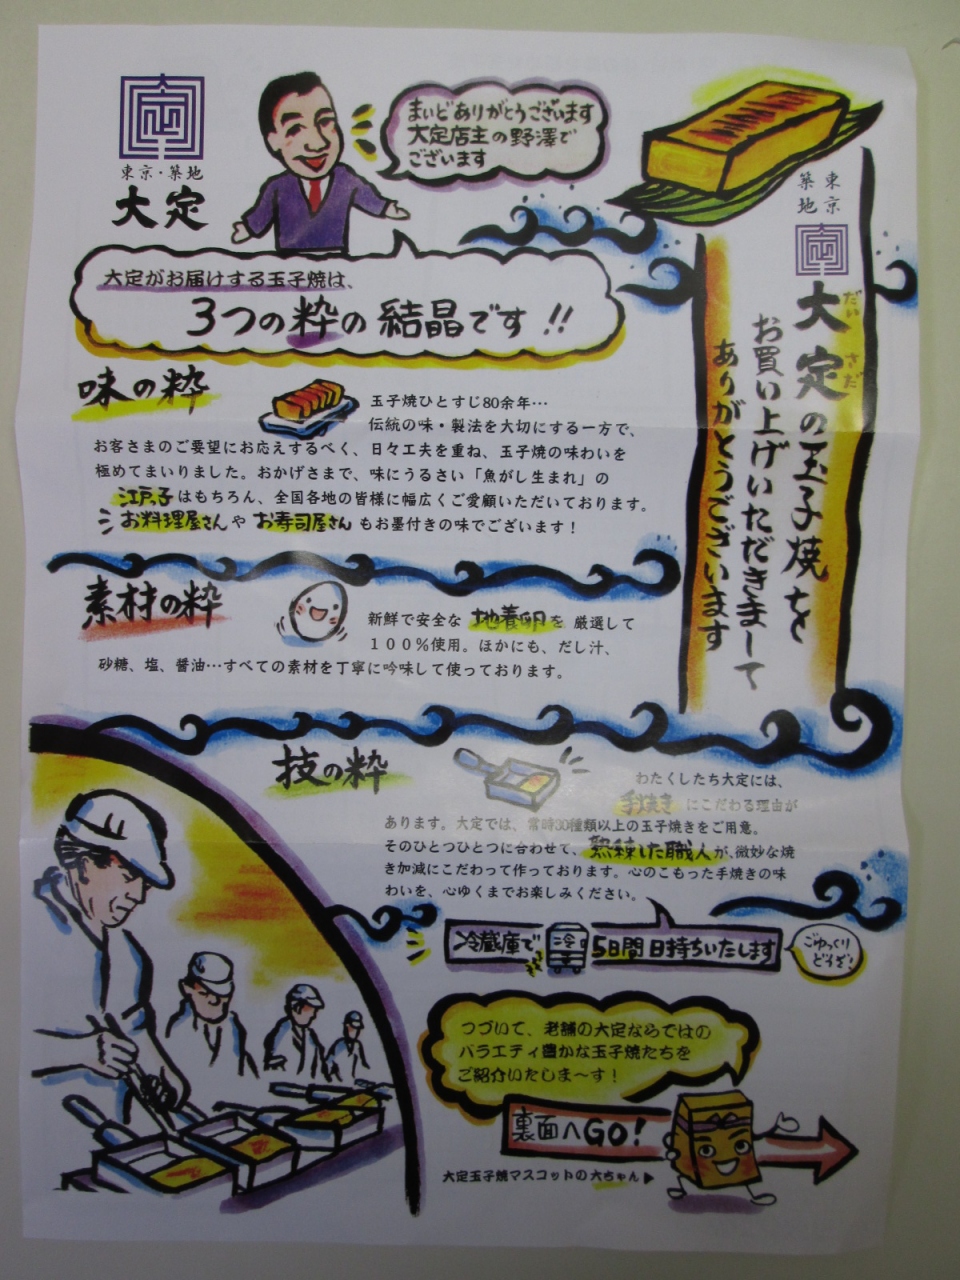 東京・築地
大定
まいどありがとうございます
大定店主の野澤で
ございます
東京
築地
大定の玉子焼を
だいさだ
お買い上げいただきまして
ありがとうございます
大定がお届けする玉子焼は、
3つの粋の結晶です!!
味の粋
玉子焼ひとすじ80余年…
伝統の味・製法を大切にする一方で、
お客さまのご要望にお応えするべく、日々工夫を重ね、玉子焼の味わいを
極めてまいりました。おかげさまで、味にうるさい「魚がし生まれ」の
江戸っ子はもちろん、全国各地の皆様に幅広くご愛顧いただいております。
お料理屋さんや お寿司屋さん もお墨付きの味でございます!
素材の粋
新鮮で安全な 地養卵を 厳選して
100%使用。ほかにも、だし汁、
砂糖、塩、醤油…すべての素材を丁寧に吟味して使っております。
技の粋
わたくしたち大定には、
手焼き にこだわる理由が
あります。大定では、常時30種類以上の玉子焼きをご用意。
そのひとつひとつに合わせて、熟練した職人が、微妙な焼
き加減にこだわって作っております。心のこもった手焼きの味
わいを、心ゆくまでお楽しみください。
冷蔵庫で 冷 5日間日持ちいたします
ごゆっくり
どうぞ!
つづいて、老舗の大定ならではの
バラエティ豊かな玉子焼たちを
ご紹介いたしま〜す!
裏面へGO!
大定玉子焼マスコットの 六ちゃん▶